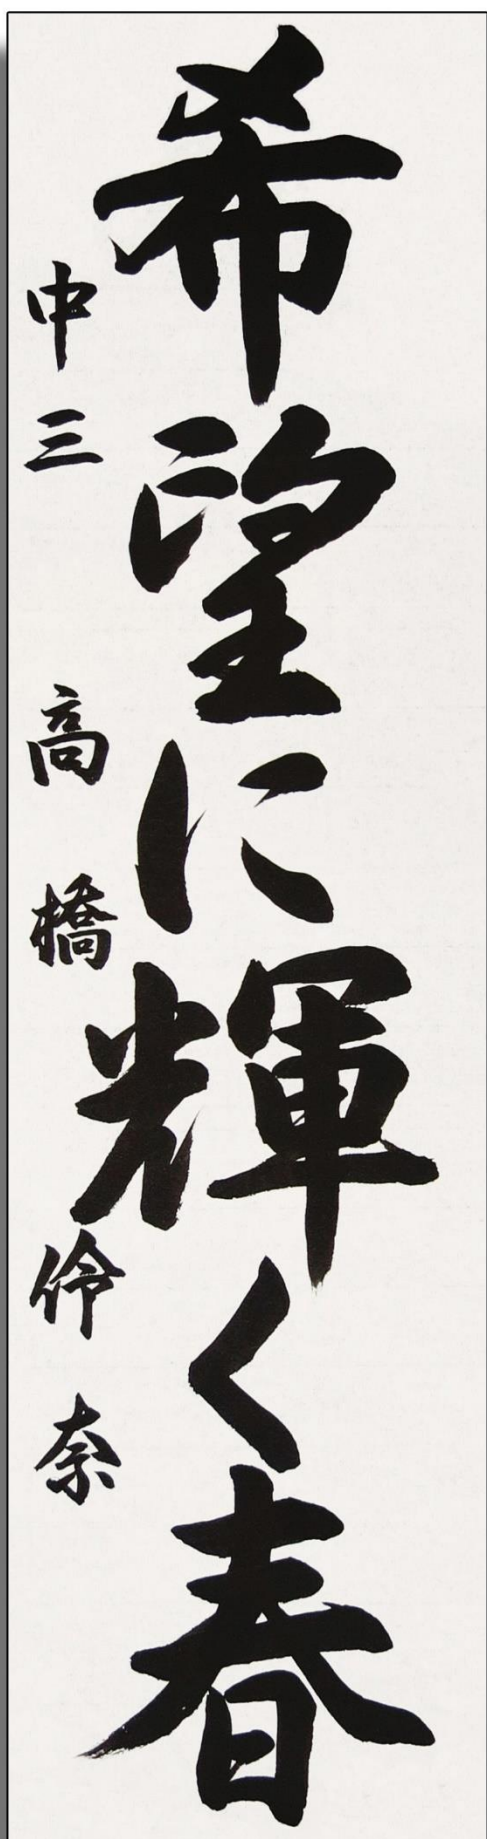 希望に輝く春
中三 高橋伶奈